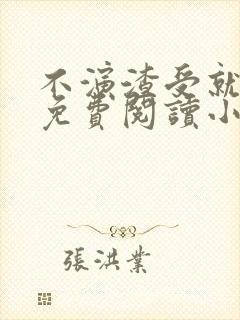 不演渣受就
免費閱讀小
張洪業